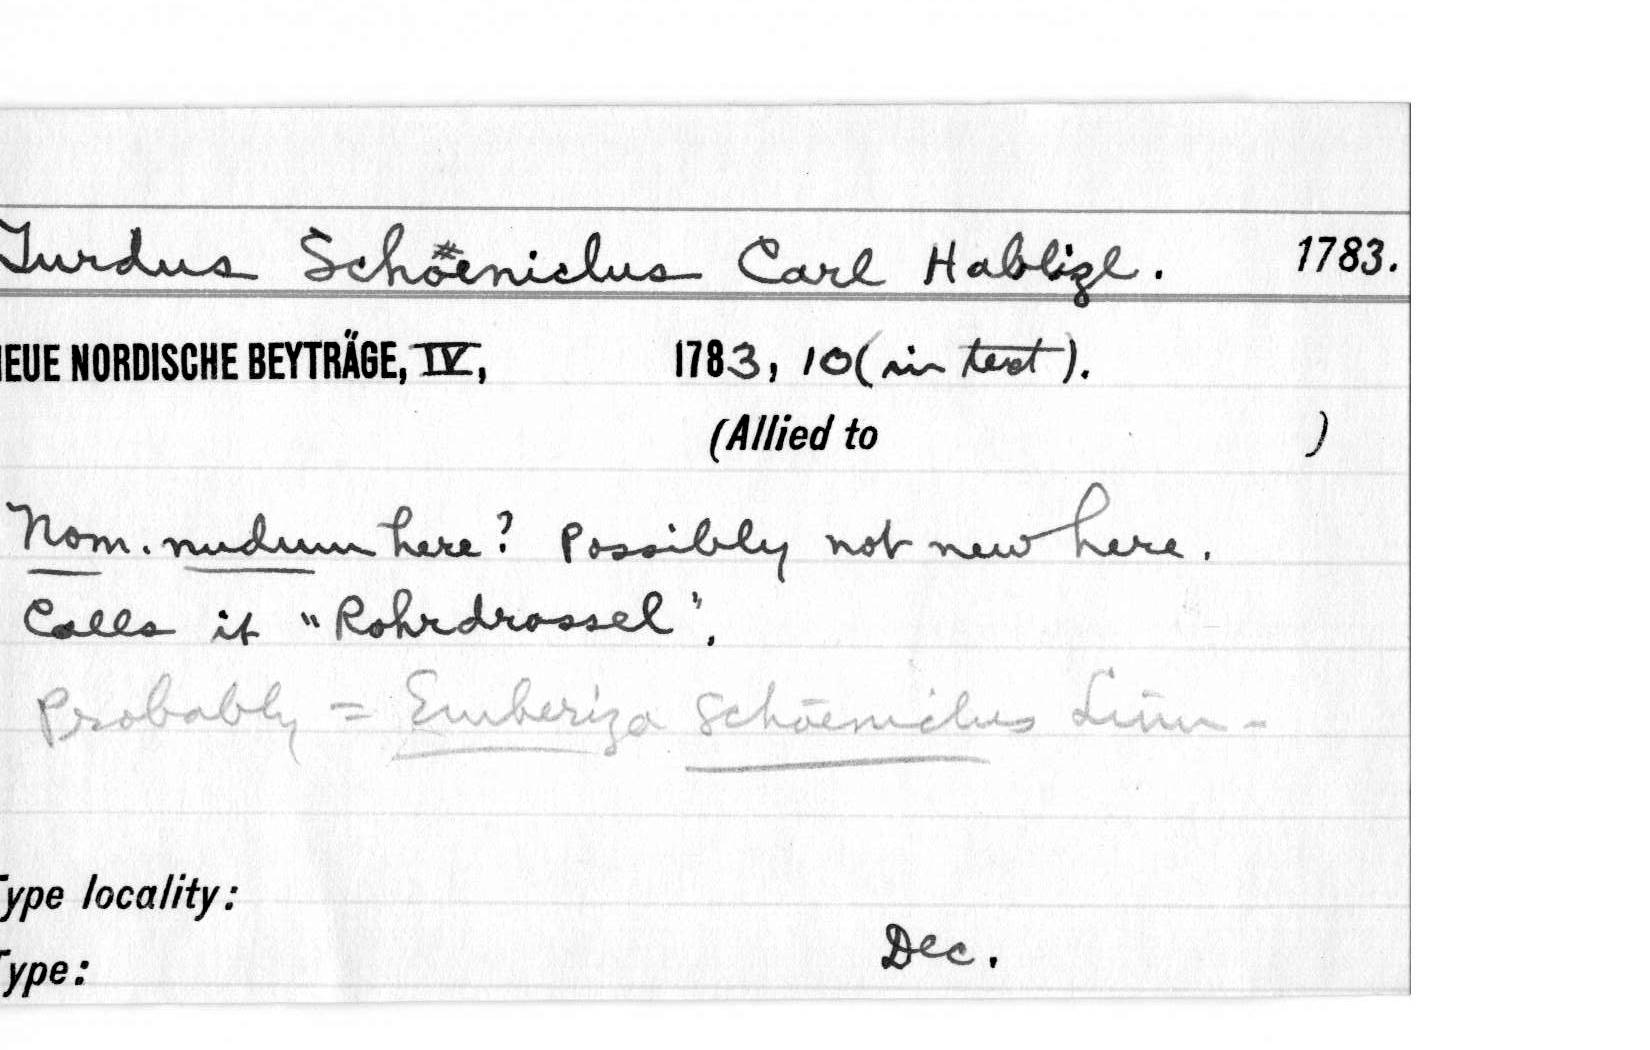 Turdus Schöeniclus Carl Hablizl. 1783.
EUE NORDISCHE BEYTRÄGE, IV, 1783, 10 (in text).
(Allied to )
Nom. nudum here? Possibly not new here.
Calls it "Rohrdrossel".
Probably = Emberiza Schöeniclus Linn-
Type locality:
Dec.
Type: